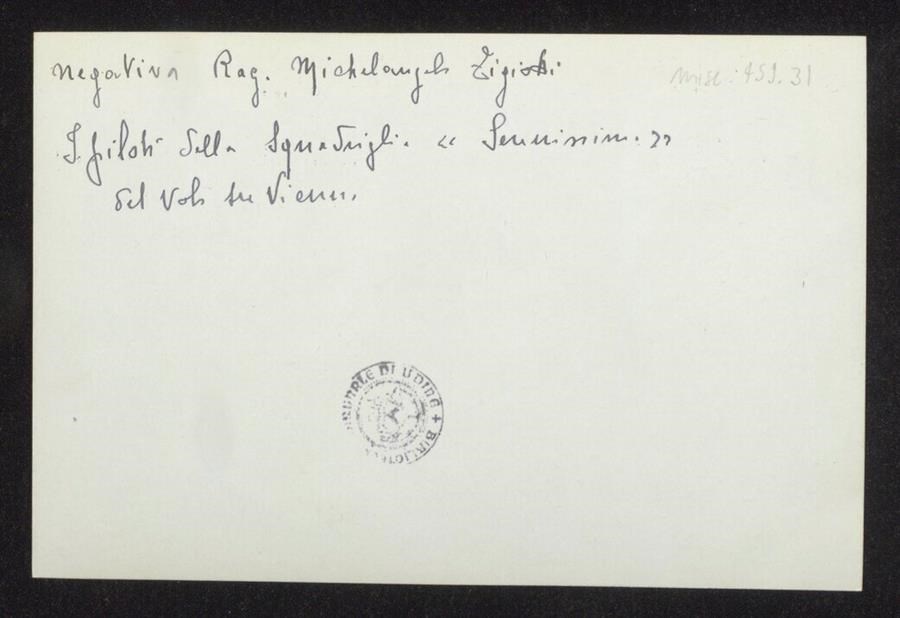 negativa Rag. Michelangelo
misc. 459.31
I piloti della Squadriglia « Serenissima »
del Volo su Vienna.
DI UDINE + BIBLIOTECA